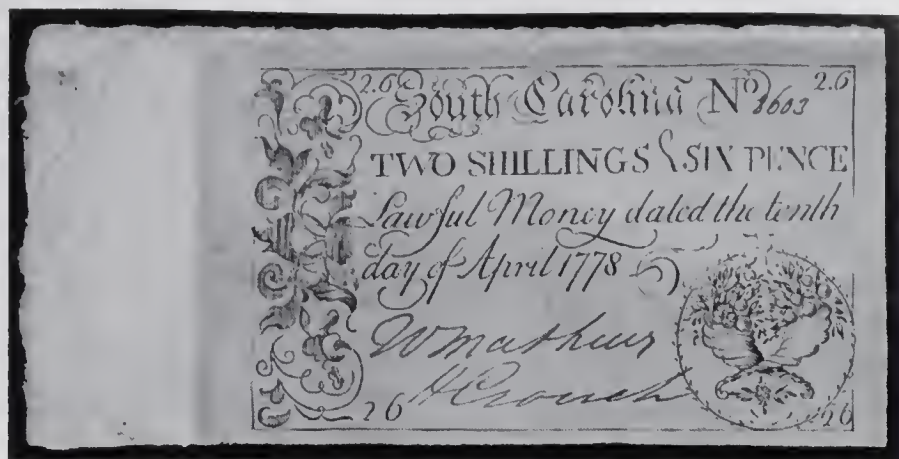 2.6 South Carolina No 8603 2.6
TWO SHILLINGS & SIX PENCE
Lawful Money dated the tenth
day of April 1778
W Mathews
H Crouch
2 6 2 6